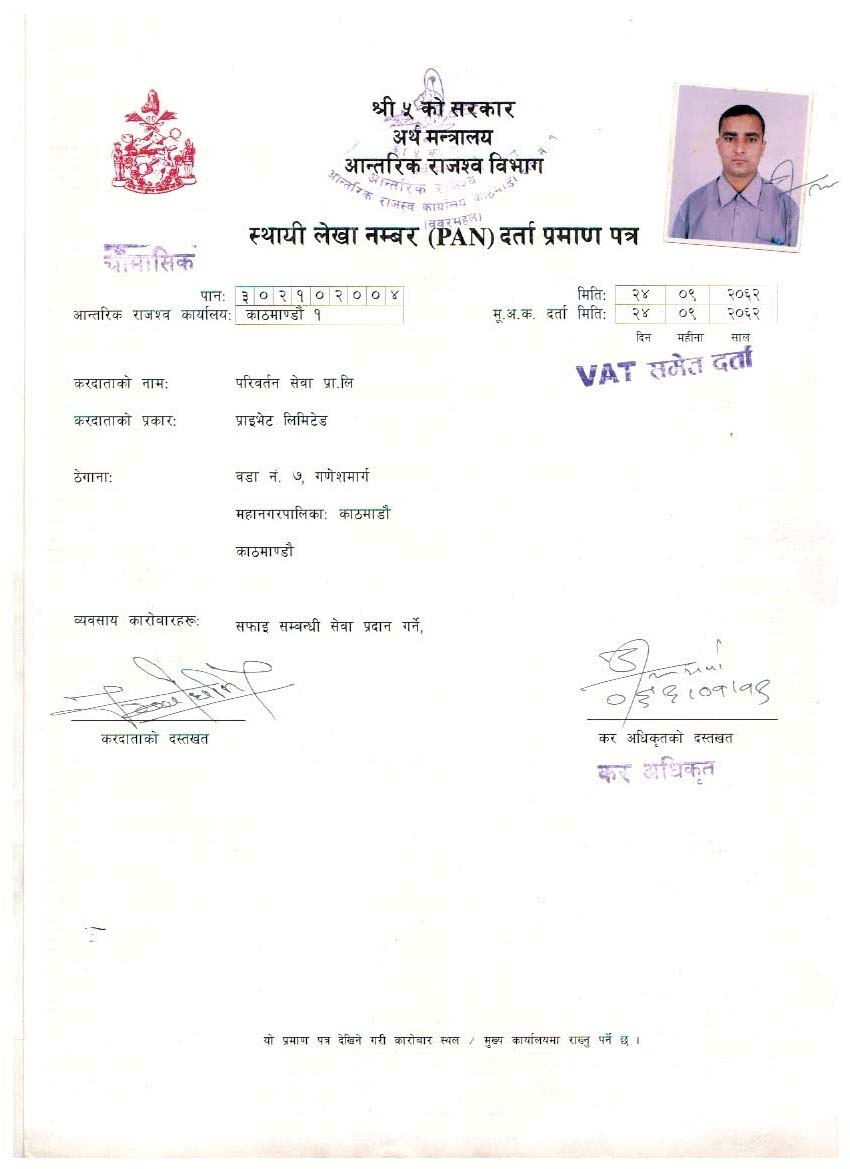 श्री ५ को सरकार
अर्थ मन्त्रालय
आन्तरिक राजश्व विभाग
आन्तरिक राजस्व कार्यालय काठमाडौं
(बबरमहल)
स्थायी लेखा नम्बर (PAN) दर्ता प्रमाण पत्र
चौमासिक
पान: ३०२१०२००४
मिति: २४ ०९ २०६२
आन्तरिक राजश्व कार्यालय: काठमाण्डौ १
मू.अ.क. दर्ता मिति: २४ ०९ २०६२
दिन महीना साल
VAT समेत दर्ता
करदाताको नाम: परिवर्तन सेवा प्रा.लि
करदाताको प्रकार: प्राइभेट लिमिटेड
ठेगाना: वडा नं. ७, गणेशमार्ग
महानगरपालिका: काठमाडौ
काठमाण्डौ
व्यवसाय कारोबारहरू: सफाइ सम्बन्धी सेवा प्रदान गर्ने,
करदाताको दस्तखत
कर अधिकृतको दस्तखत
कर अधिकृत
यो प्रमाण पत्र देखिने गरी कारोबार स्थल / मुख्य कार्यालयमा राख्नु पर्ने छ ।